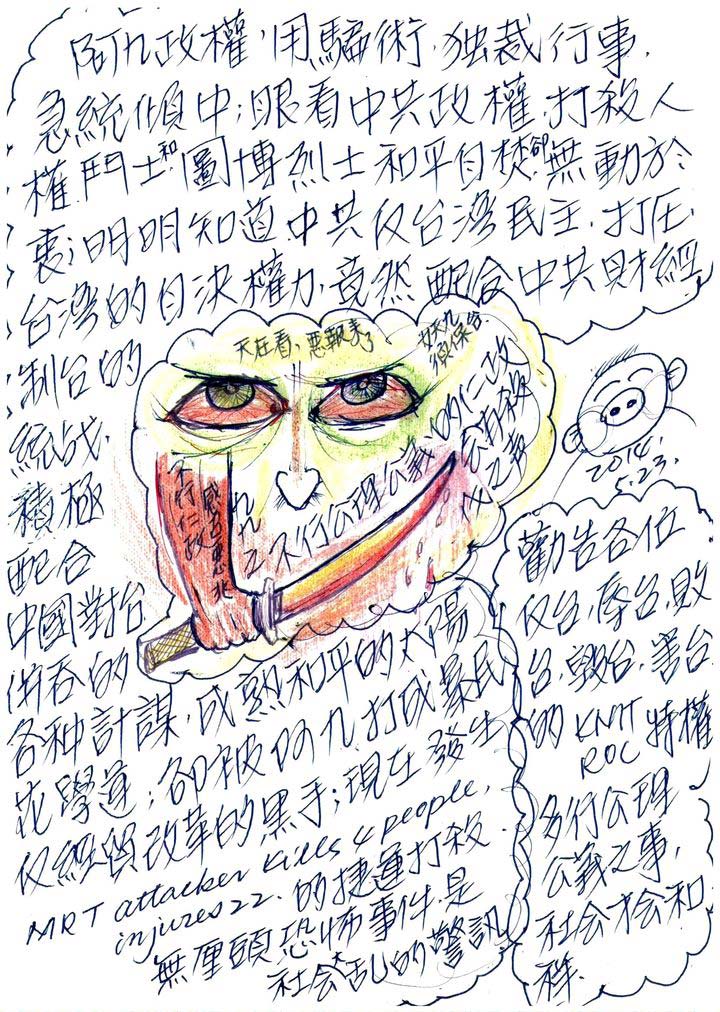 阿九政權,用騙術.独裁行事.
急統傾中;眼看中共政權.打殺人
權鬥士和圖博烈士和平自焚卻無動於
衷;明明知道中共反台湾民主.打压.
台湾的自決權力.竟然配合中共財經
制台的
統战.
積極
配合
中國對台
併吞的
各种計謀.成熟和平的太陽
花學運;卻被阿九打成暴民
反經貿改革的黑手;現在發生
MRT attacker kills 4 people,
injures 22.的捷運打殺.
無厘頭恐怖事件.是
社会大乱的警訊
天在看.惡報來了
不行仁政
不行公理公義的仁政
2014.
5.23.
勸告各位
反台.辱台.敗
台.毀台.害台
的 KMT
ROC 特權
多行公理
公義之事.
社会才会和
祥.